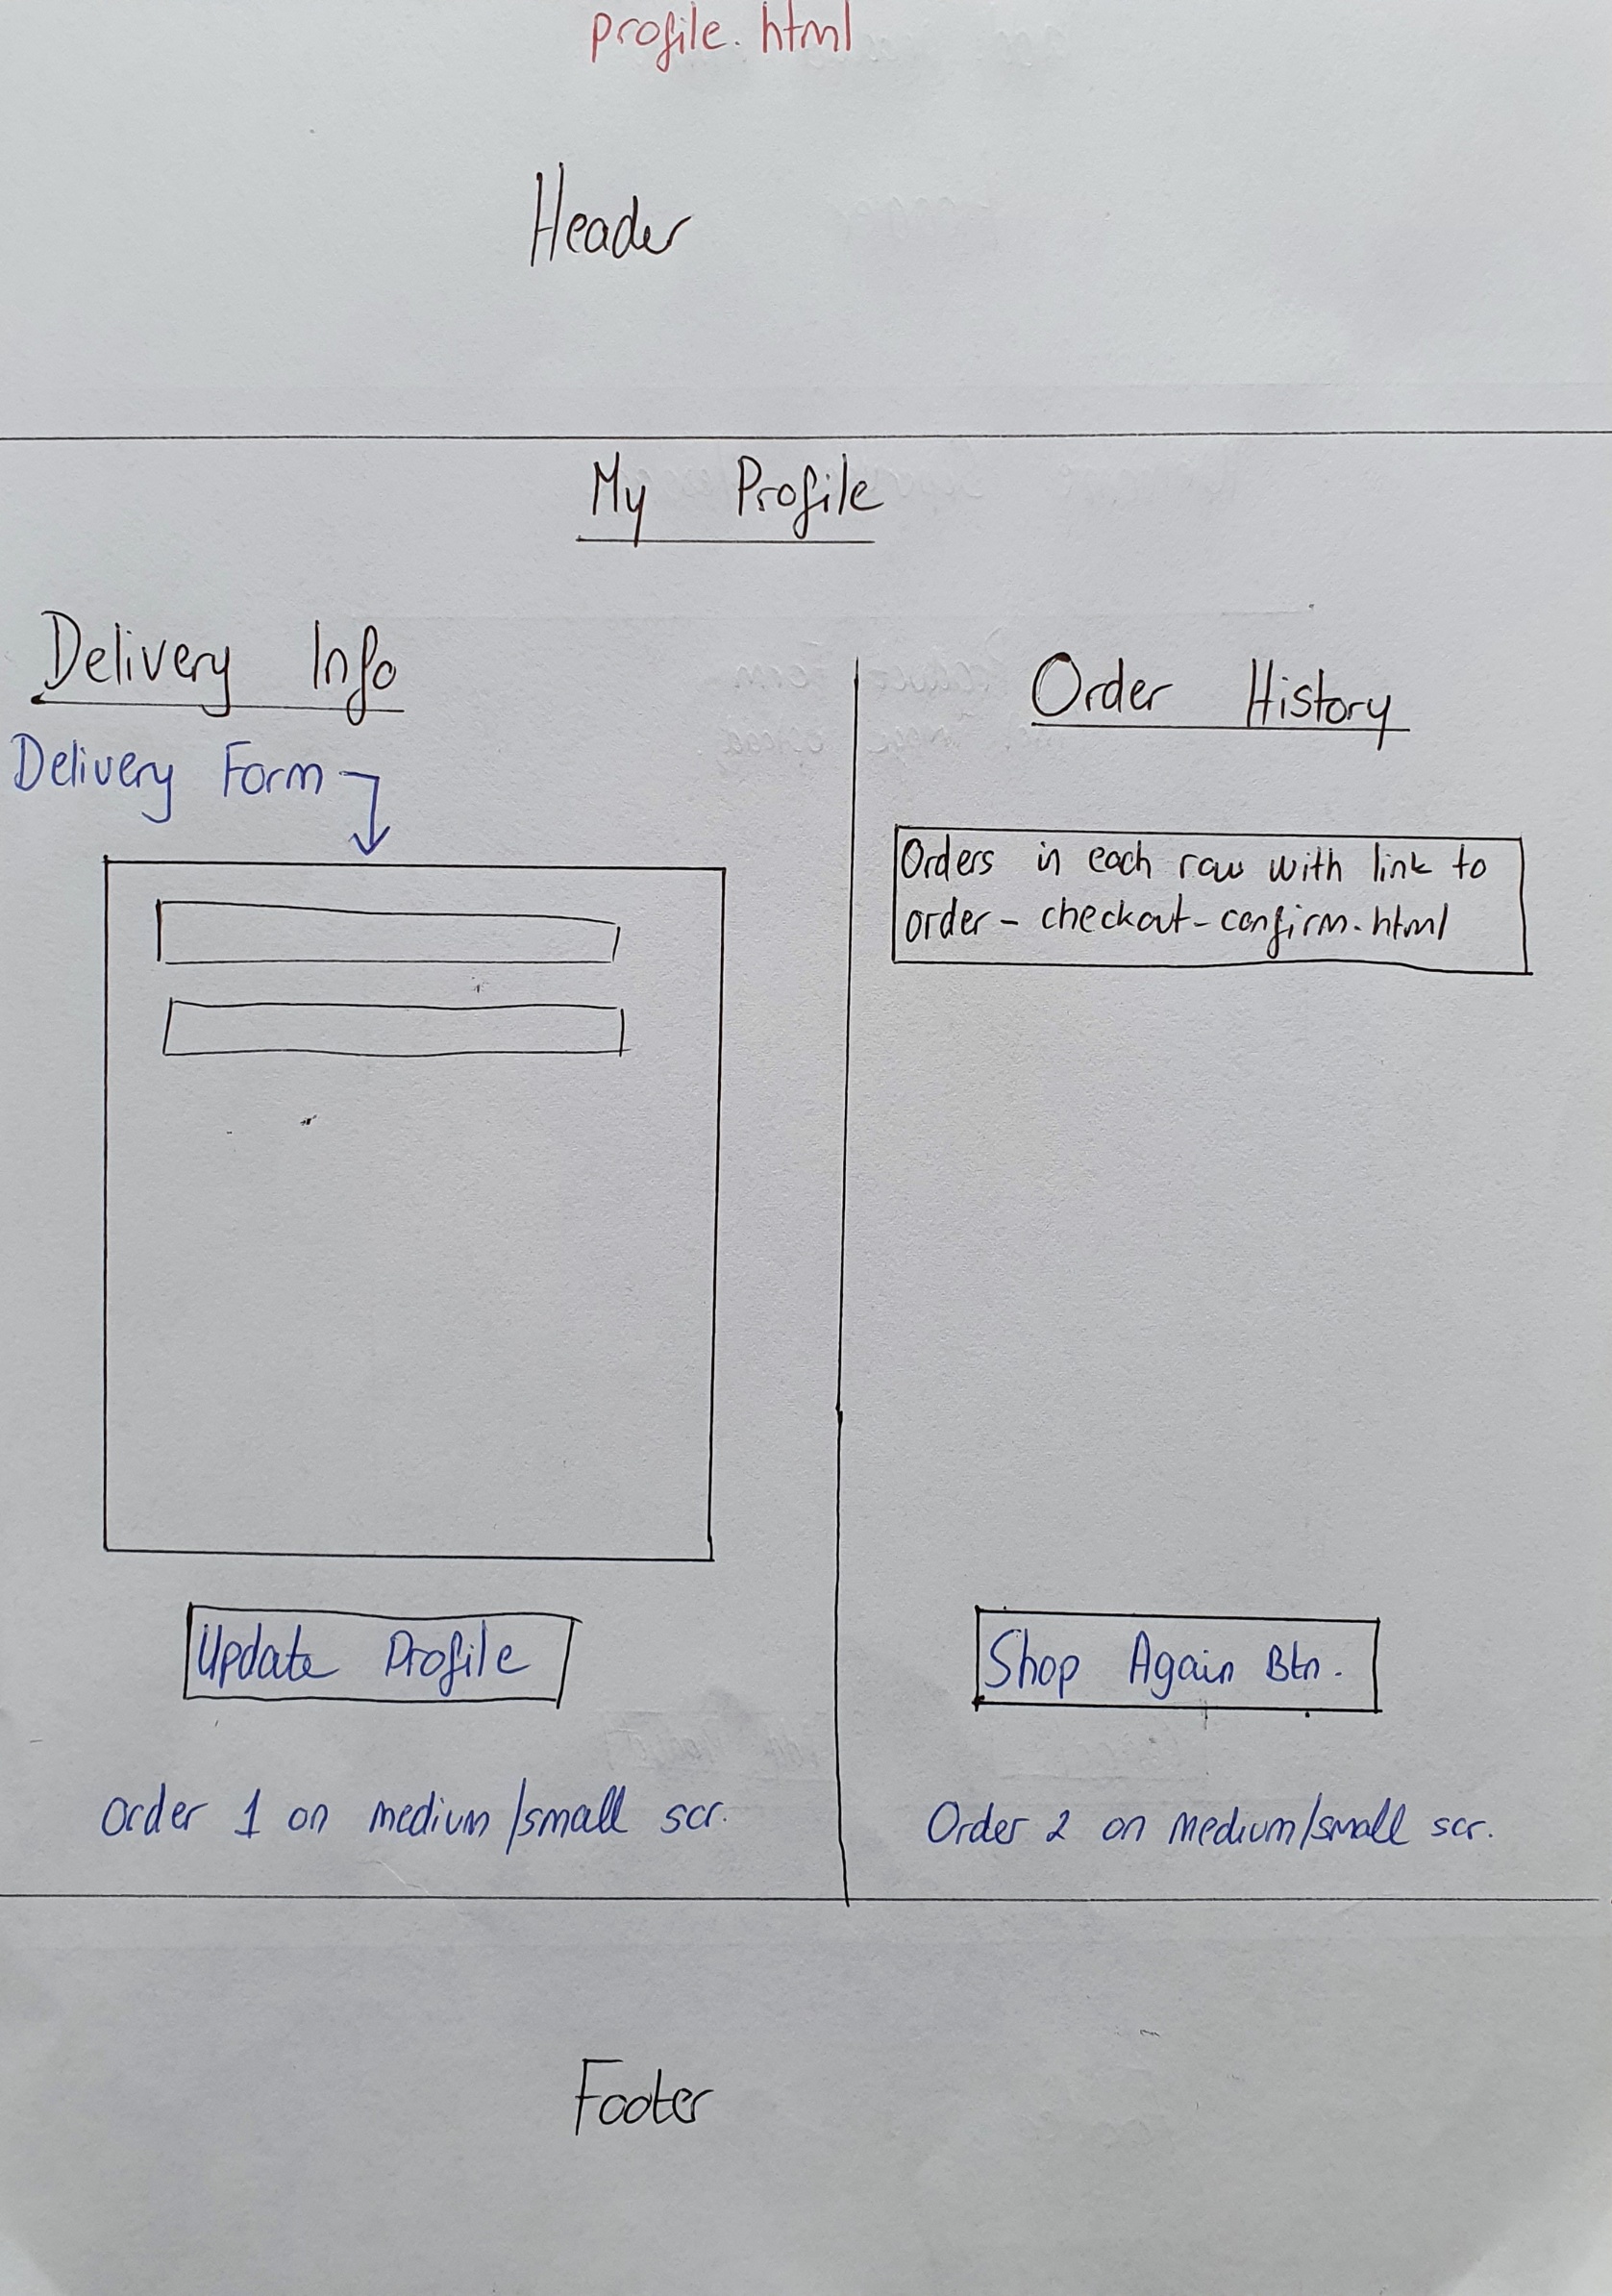 profile.html
Header
My Profile
Delivery Info
Delivery Form
Update Profile
Order 1 on medium/small scr.
Order History
Orders in each row with link to
order-checkout-confirm.html
Shop Again Btn.
Order 2 on medium/small scr.
Footer